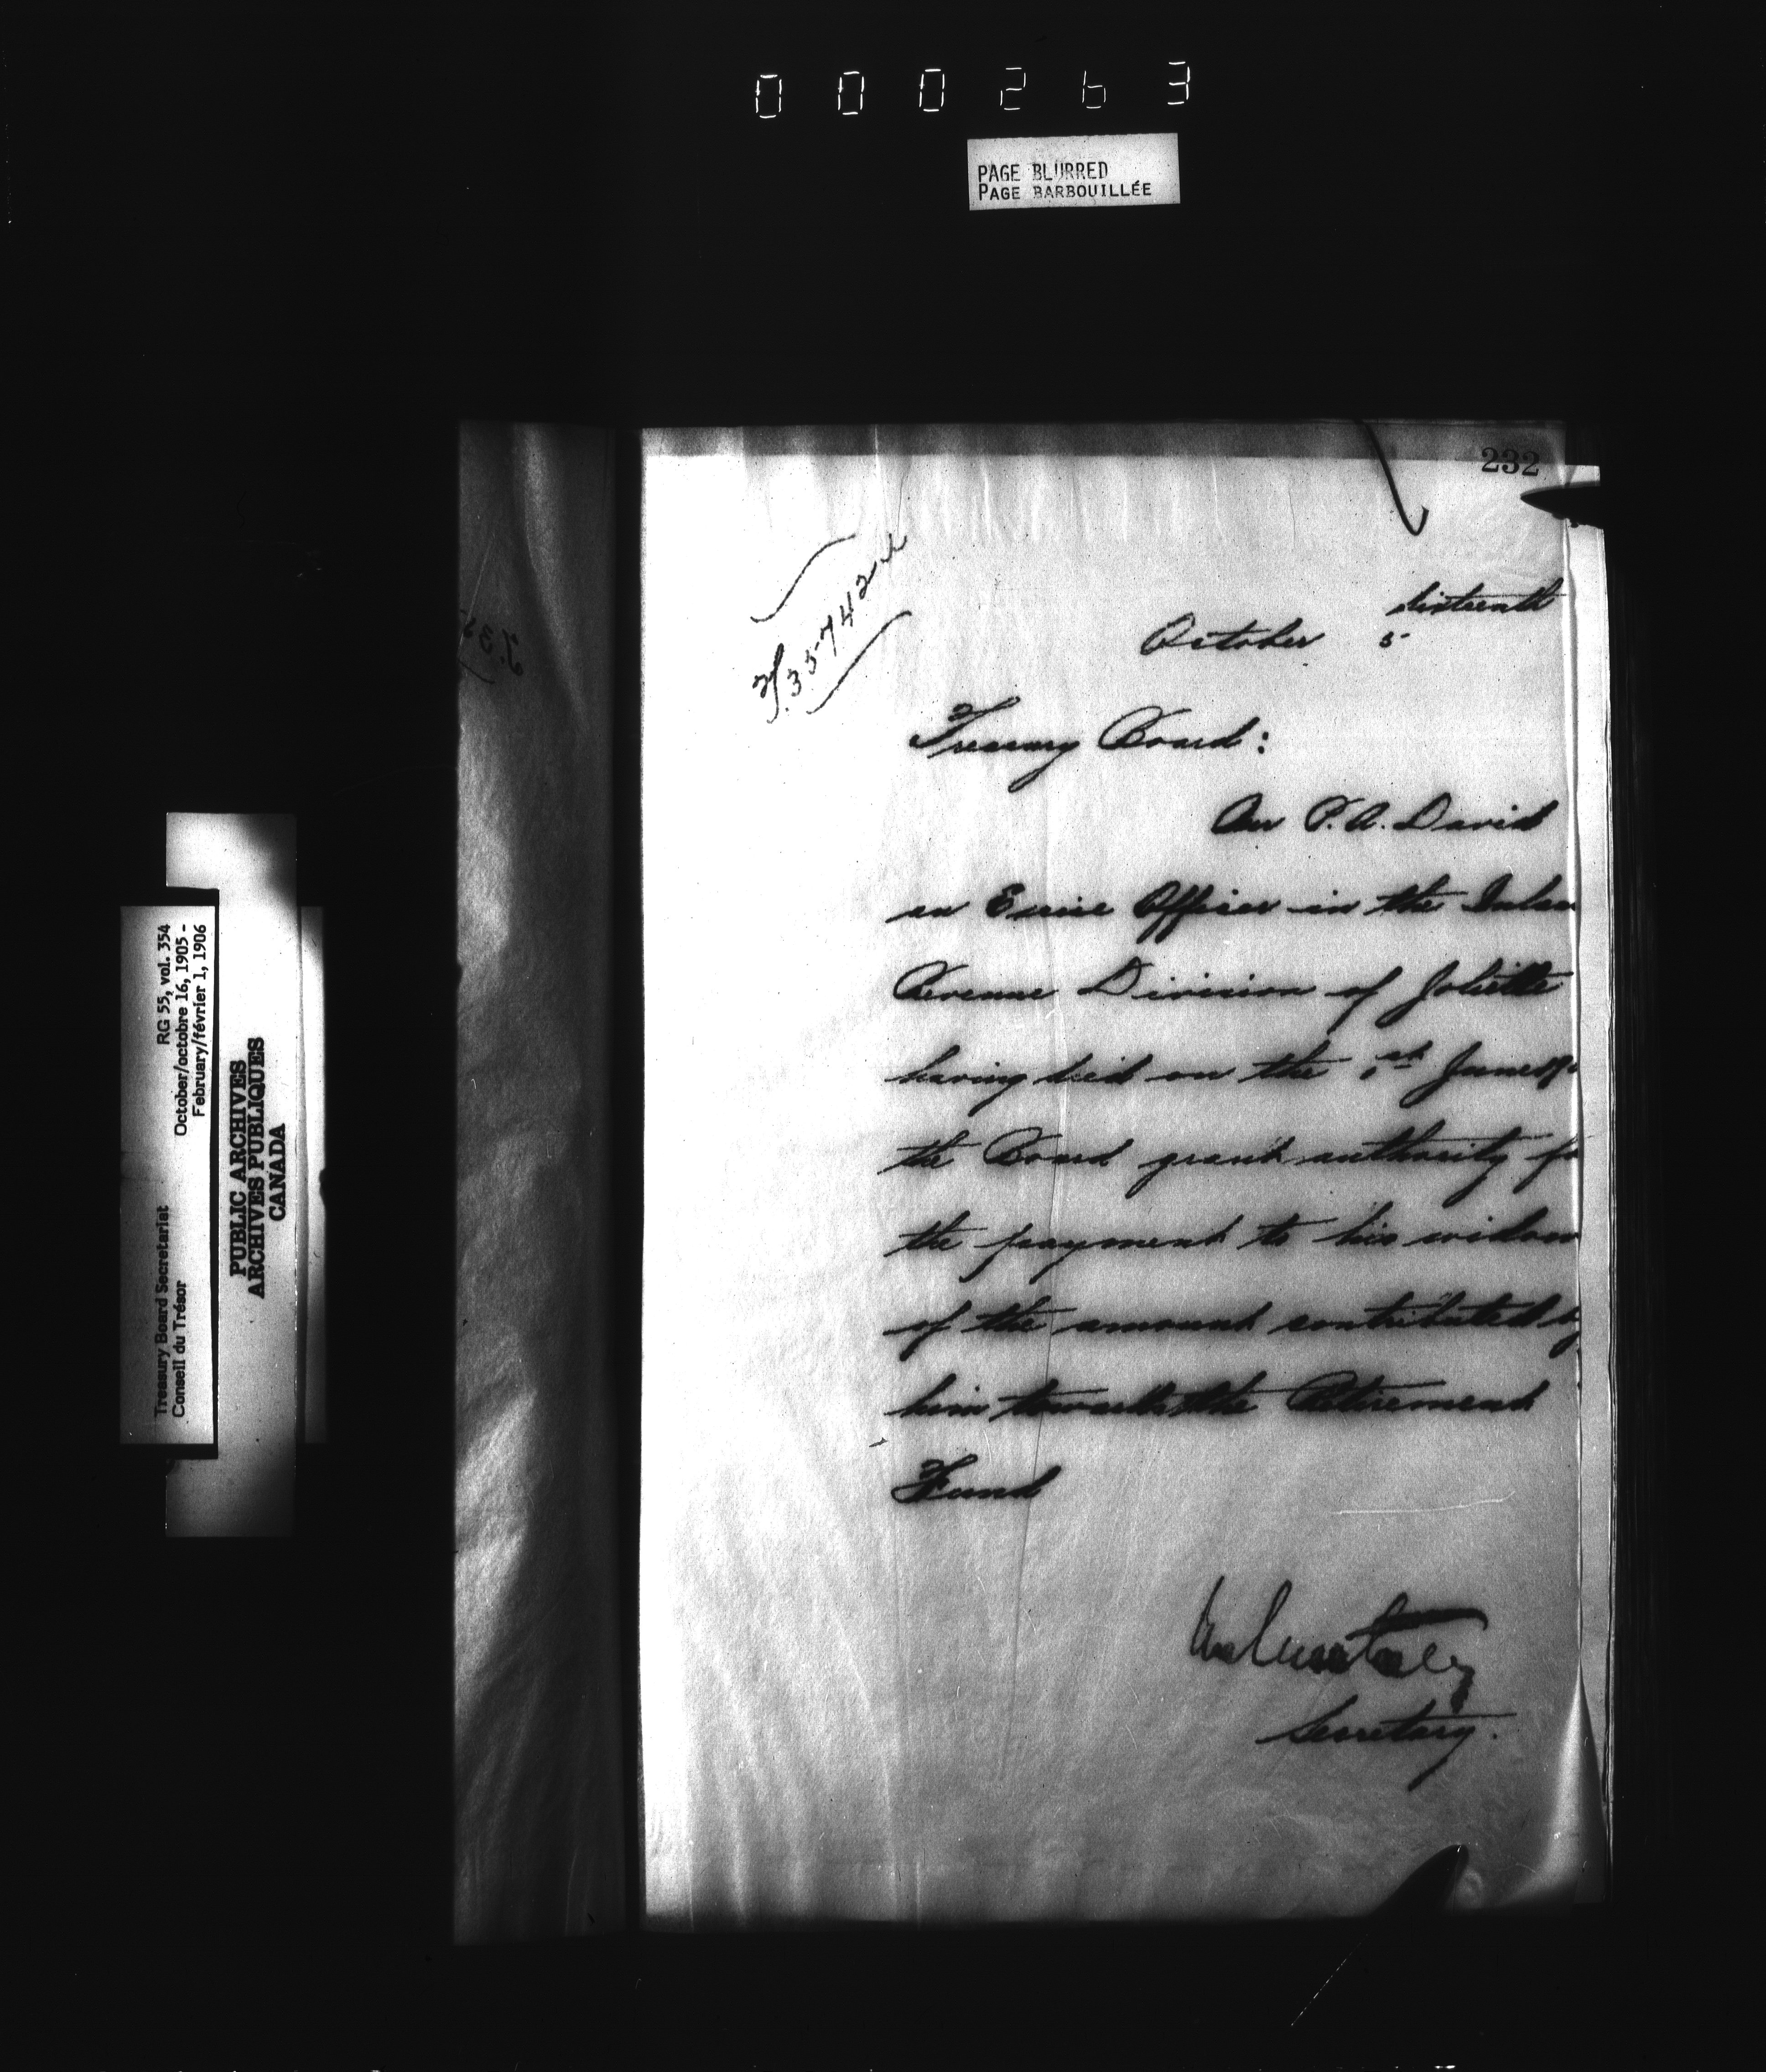 000263
PAGE BLURRED
PAGE BARBOUILLÉE
232
35742
sixteenth
October 5
Treasury Board:
P. A. David
an Excise Officer in the Inlan
Revenue Division of Joliette
having died on the 1st June
the Board grant authority fo
the payment to his widow
of the amount contributed by
him towards the Retirement
Fund
Secretary.
Treasury Board Secretariat RG 55, vol. 354
Conseil du Trésor October/octobre 16, 1905 -
February/février 1, 1906
PUBLIC ARCHIVES
ARCHIVES PUBLIQUES
CANADA